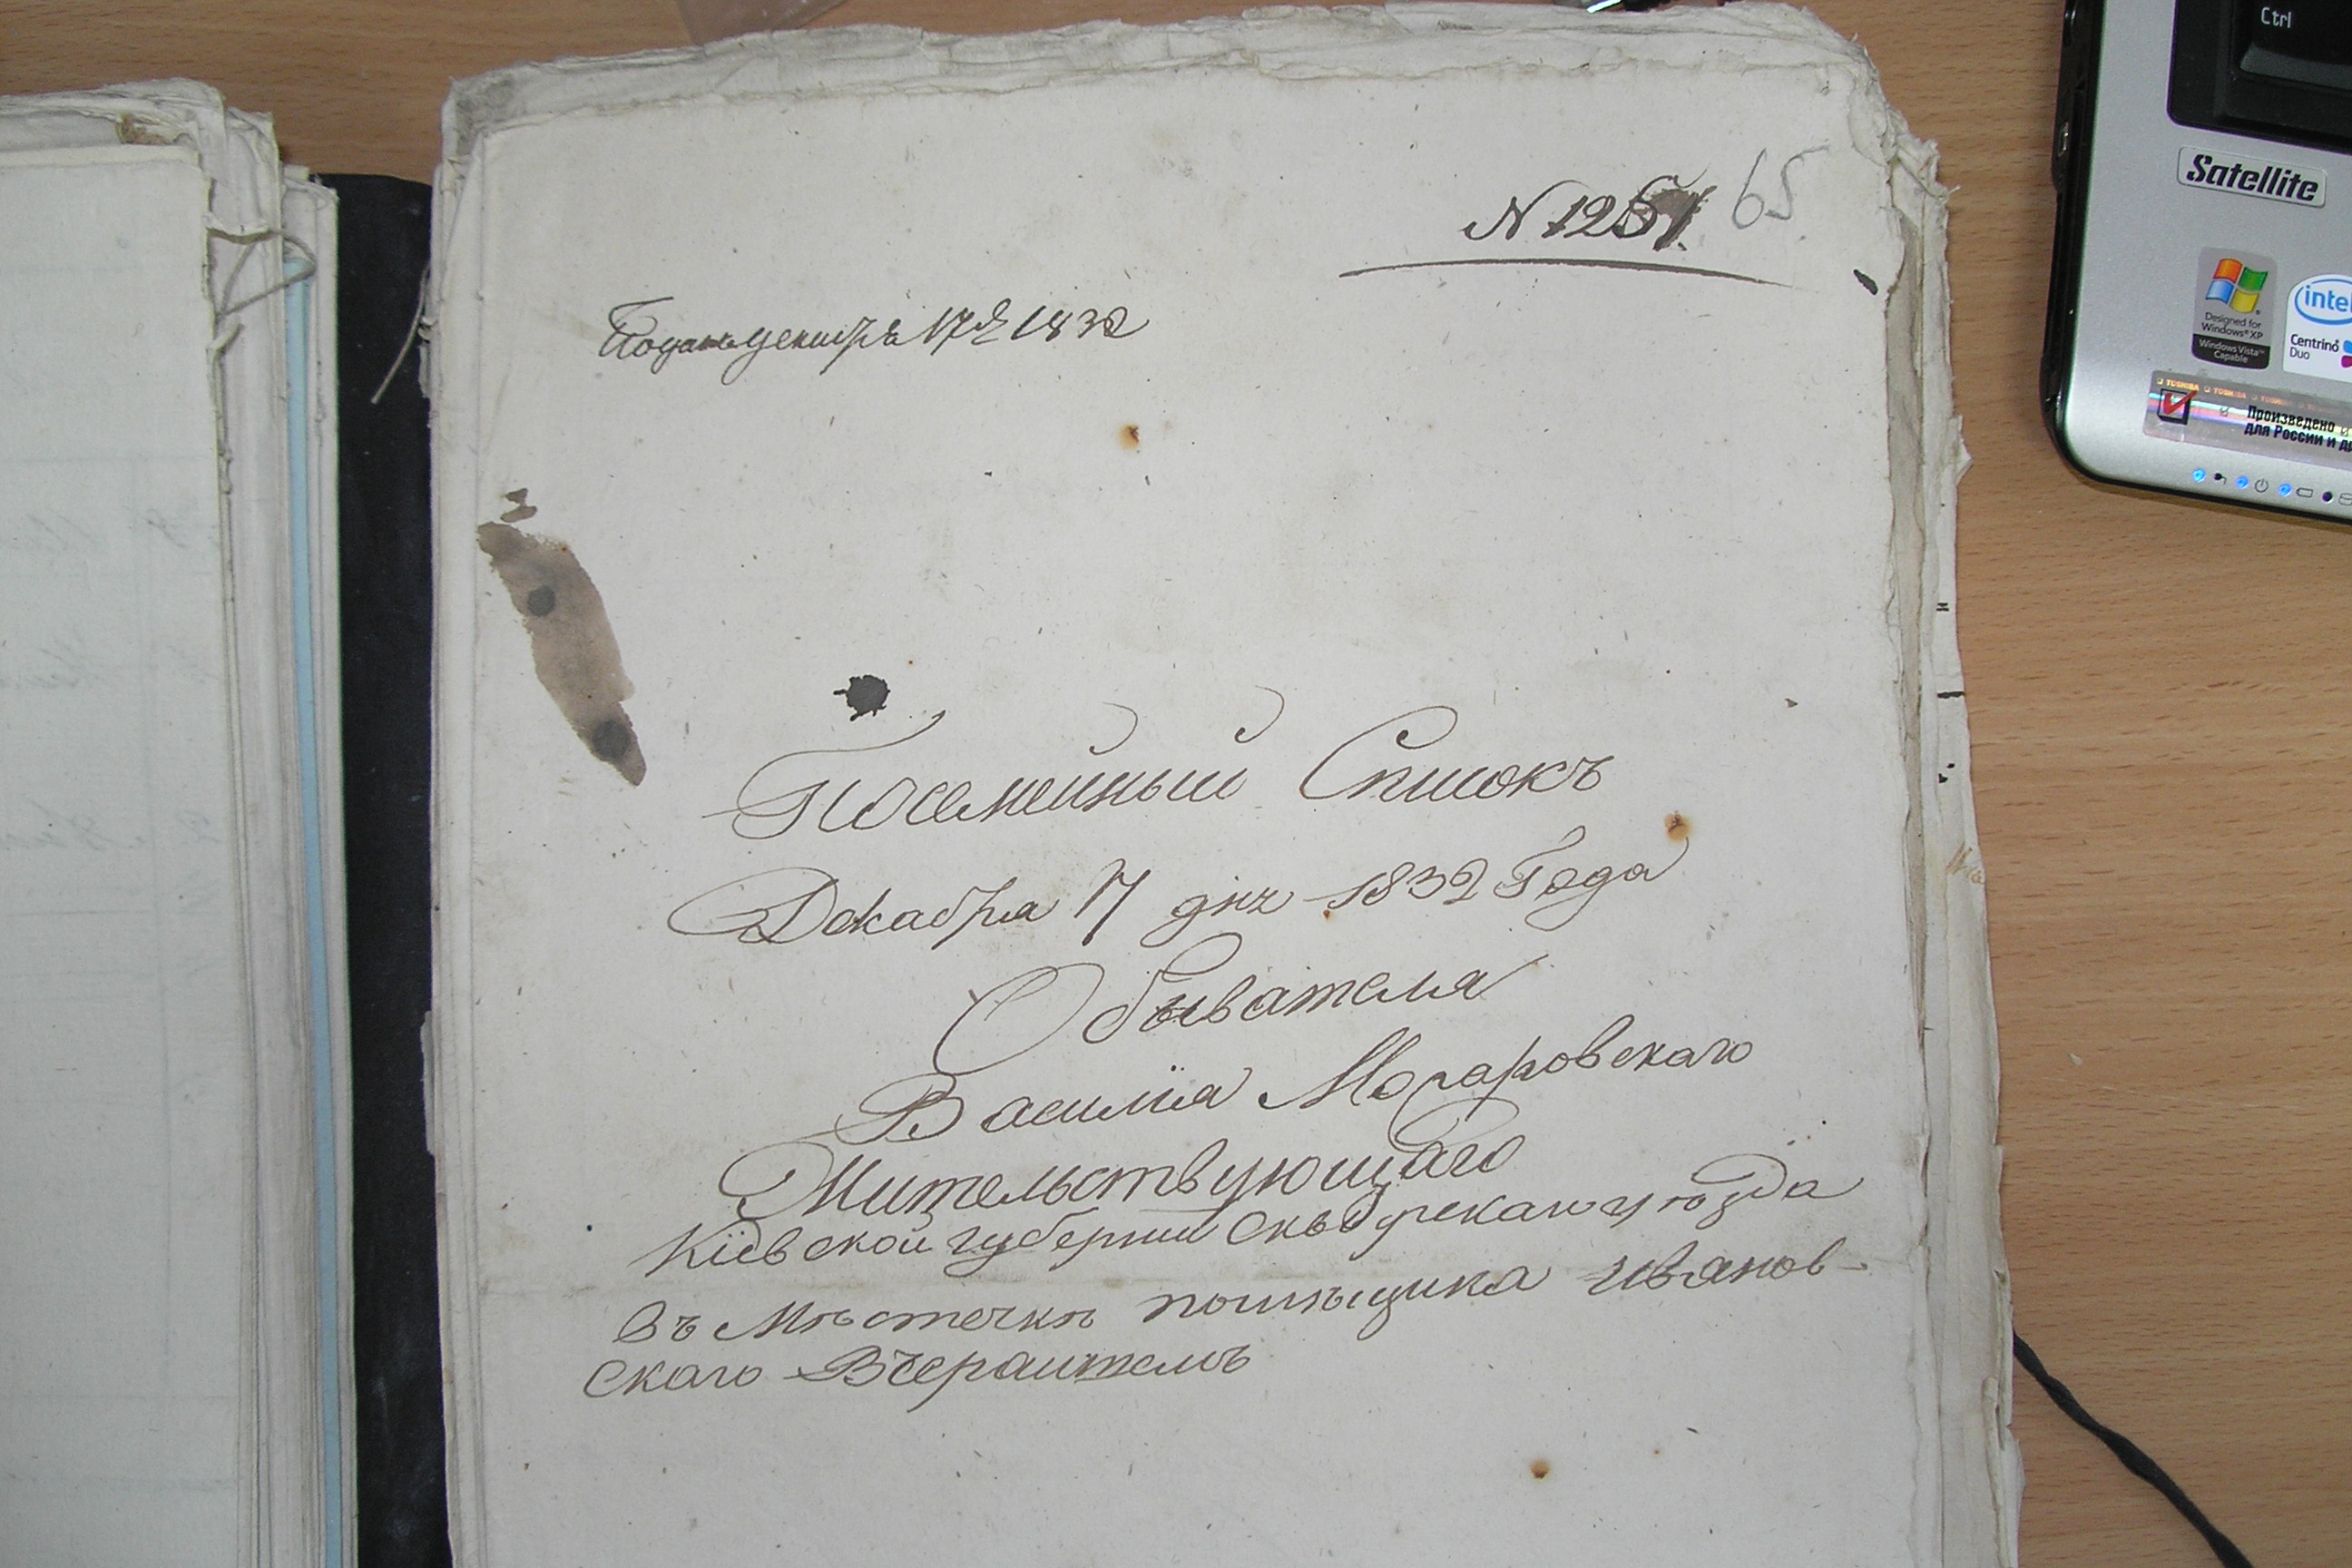 N 1251.
65
Подань декабрѣ 17 д 1832
Посемейный Списокъ
Декабра 17 дня 1832 Года
Обывателя
Василїа Могаровскаго
Жительствующаго
Кїевской губернии Сквбурскаго уюзда
въ Мѣстечкѣ помѣщика Иванов-
скаго
Ctrl
Satellite
Designed for
Windows® XP
Windows Vista™
Capable
intel
Centrino
Duo
TOSHIBA TOSHIBA TOSHIBA
Произведено
для России и